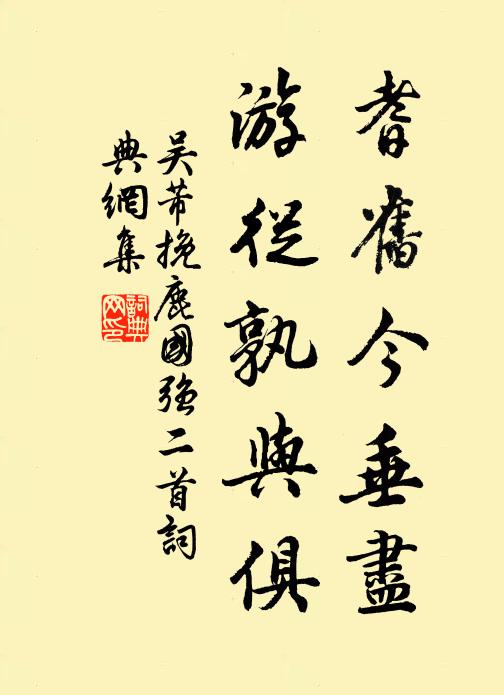 耆舊今垂盡
游從孰與俱
吴芾挽鹿國強二首詞
典網集
詞典網印